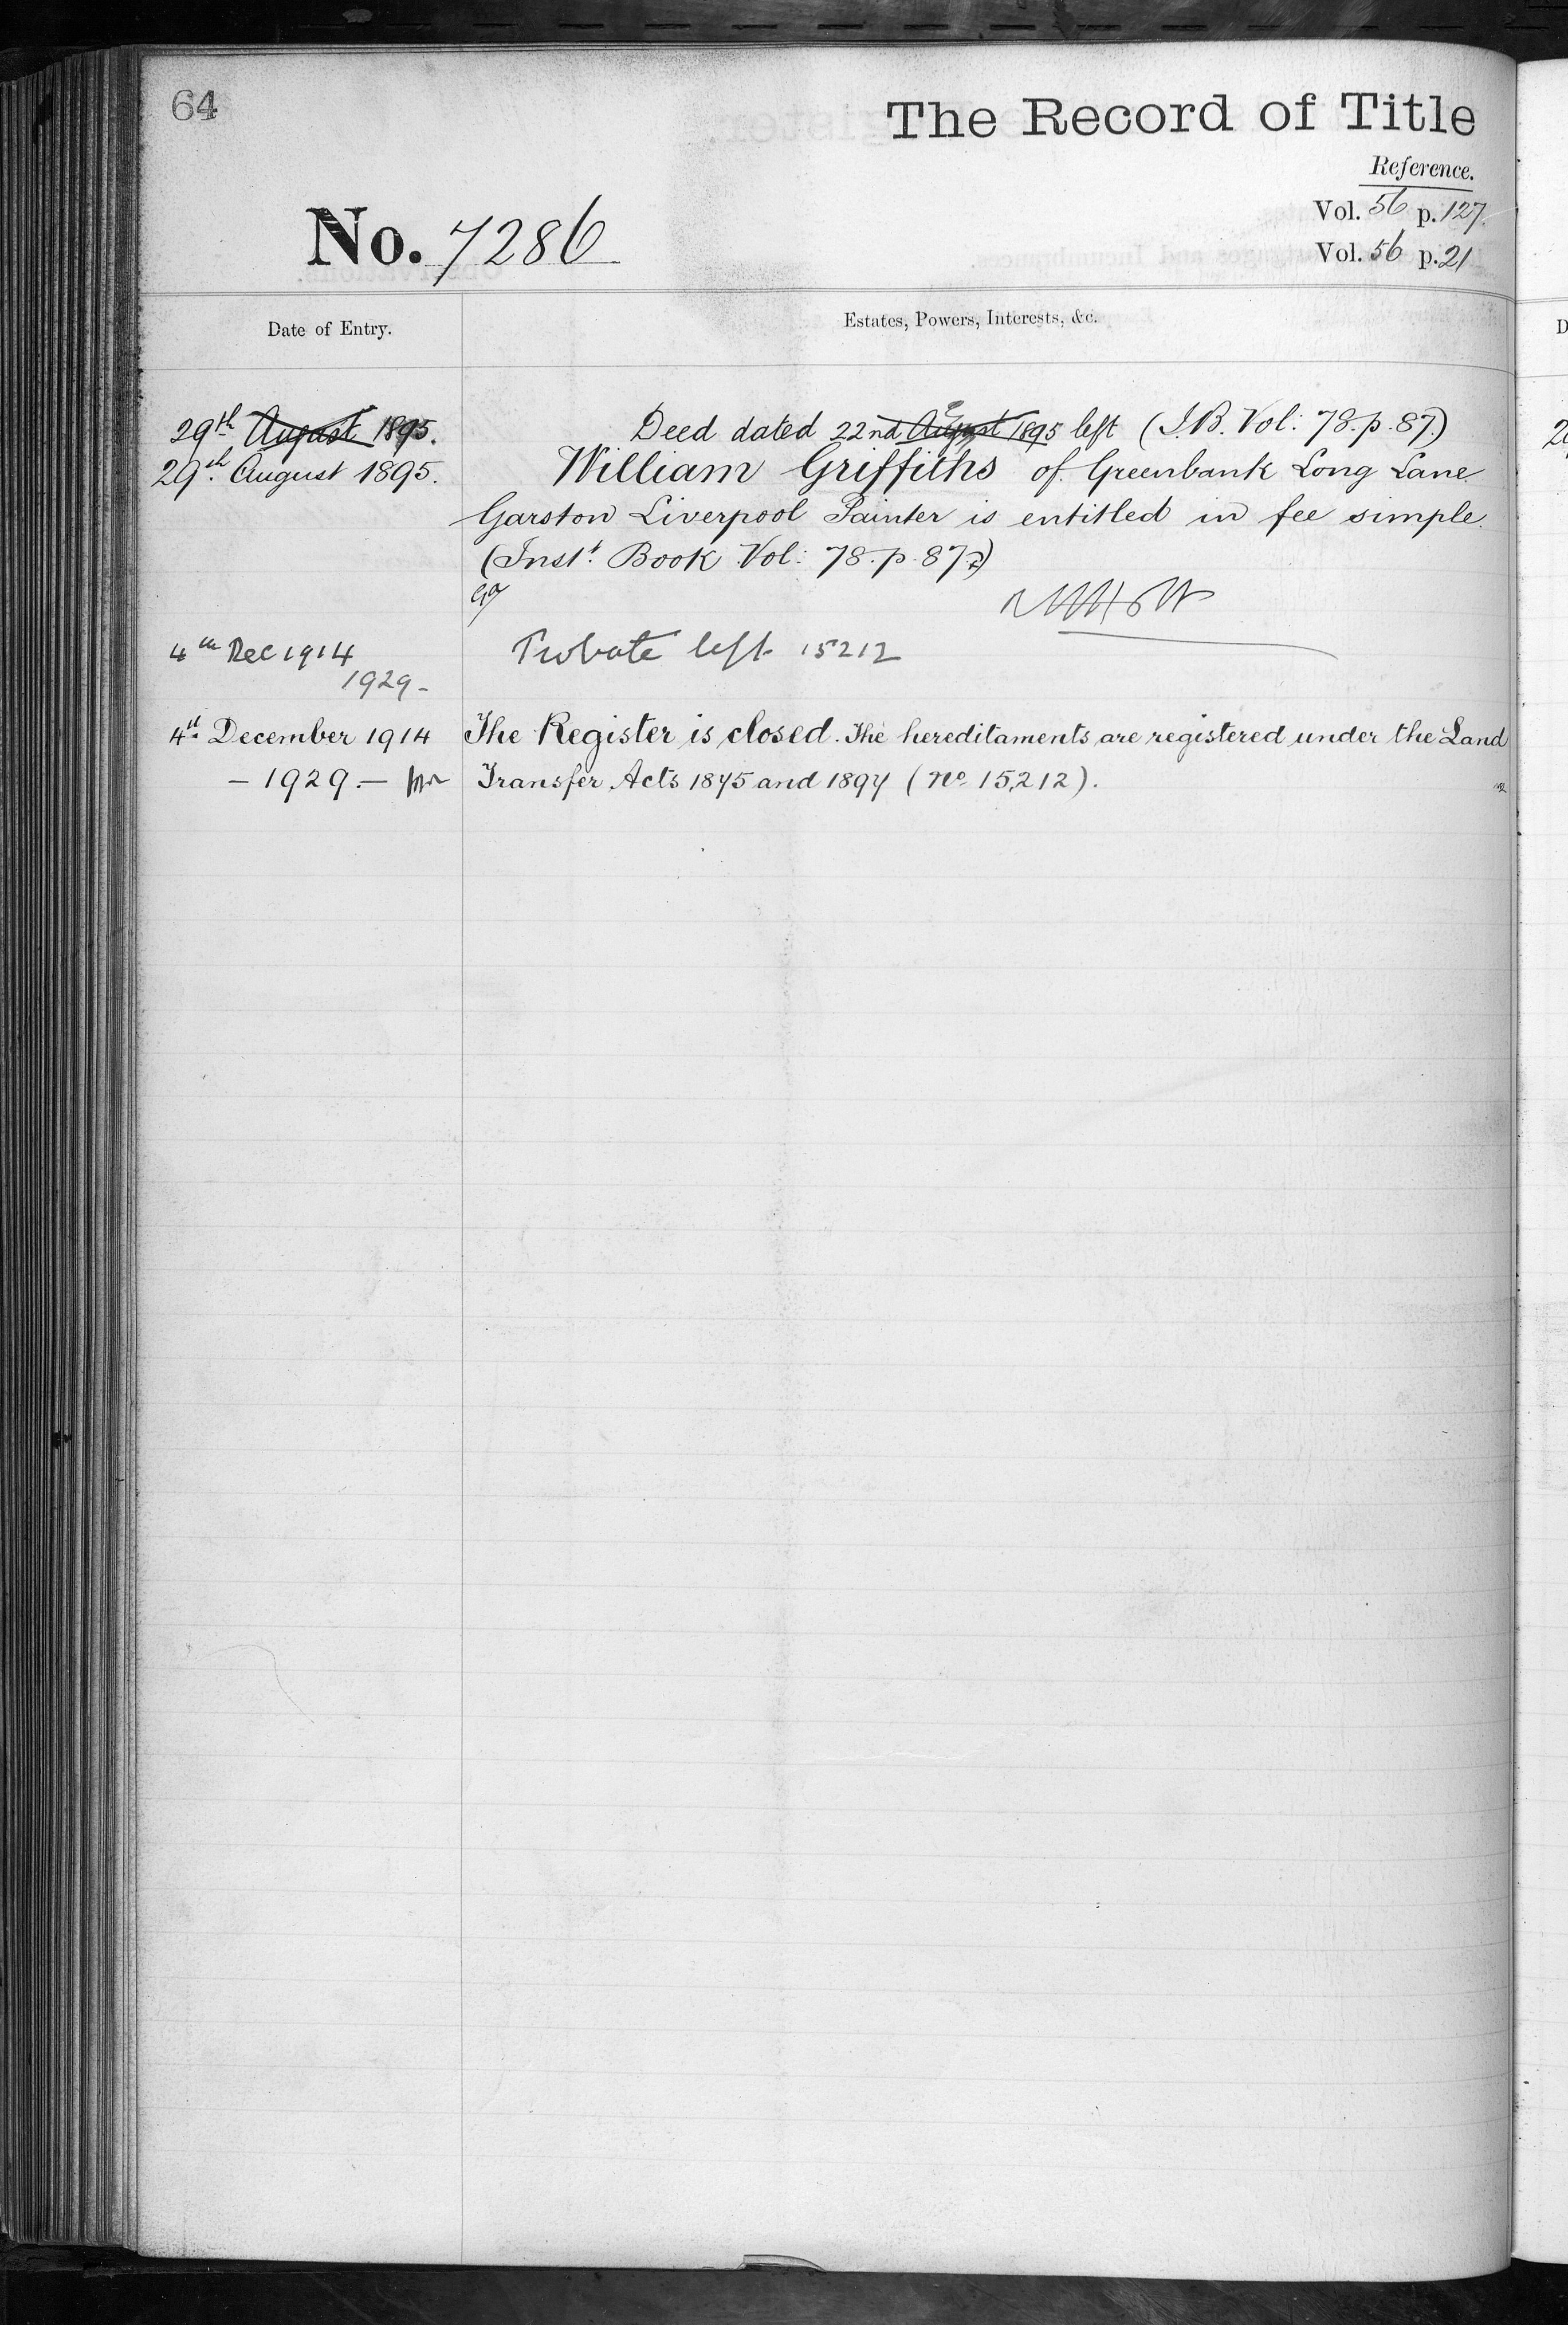 64
The Record of Title
Reference.
Vol. 56 p. 127.
Vol. 56 p. 21
No. 7286
Date of Entry.
Estates, Powers, Interests, &c.
29th August 1895. Deed dated 22nd August 1895 left (I.B. Vol: 78. p. 87.)
29th August 1895. William Griffiths of Greenbank Long Lane
Garston Liverpool Painter is entitled in fee simple.
(Inst. Book Vol: 78. p 87.)
4th Dec 1914 Probate left 15212
1929 -
4th December 1914 The Register is closed. The hereditaments are registered under the Land
- 1929. - Transfer Acts 1875 and 1897 (No. 15,212).